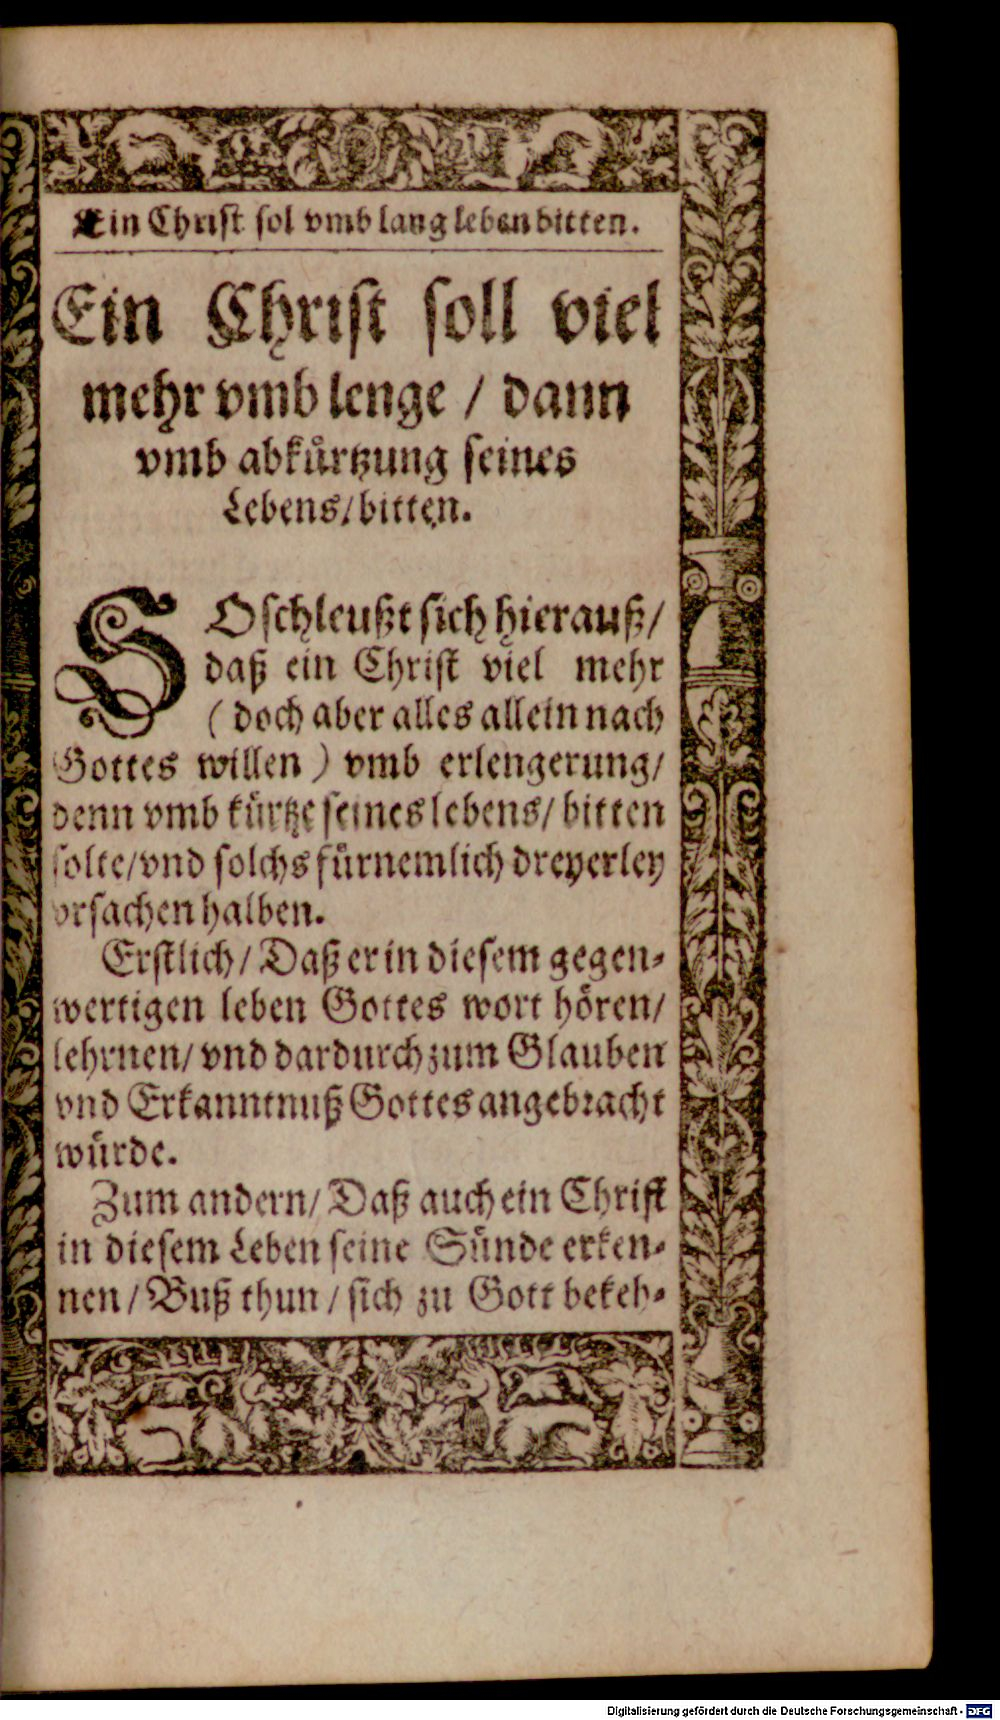 Ein Christ sol vmb lang leben bitten.
Ein Christ soll viel
mehr vmb lenge / dann
vmb abkuͤrtzung seines
Lebens / bitten.
SO schleußt sich hierauß /
daß ein Christ viel mehr
( doch aber alles allein nach
Gottes willen ) vmb erlengerung /
denn vmb kuͤrtze seines lebens / bitten
solte / vnd solchs fuͤrnemlich dreyerley
vrsachen halben.
Erstlich / Daß er in diesem gegen-
wertigen leben Gottes wort hoͤren /
lehrnen / vnd dardurch zum Glauben
vnd Erkanntnuß Gottes angebracht
wuͤrde.
Zum andern / Daß auch ein Christ
in diesem Leben seine Suͤnde erken-
nen / Buß thun / sich zu Gott bekeh-
Digitalisierung gefördert durch die Deutsche Forschungsgemeinschaft - DFG